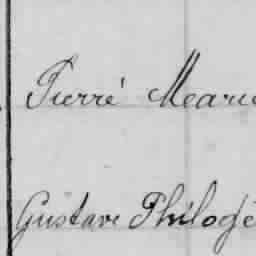 Pierré Marie
Gustave Philogè